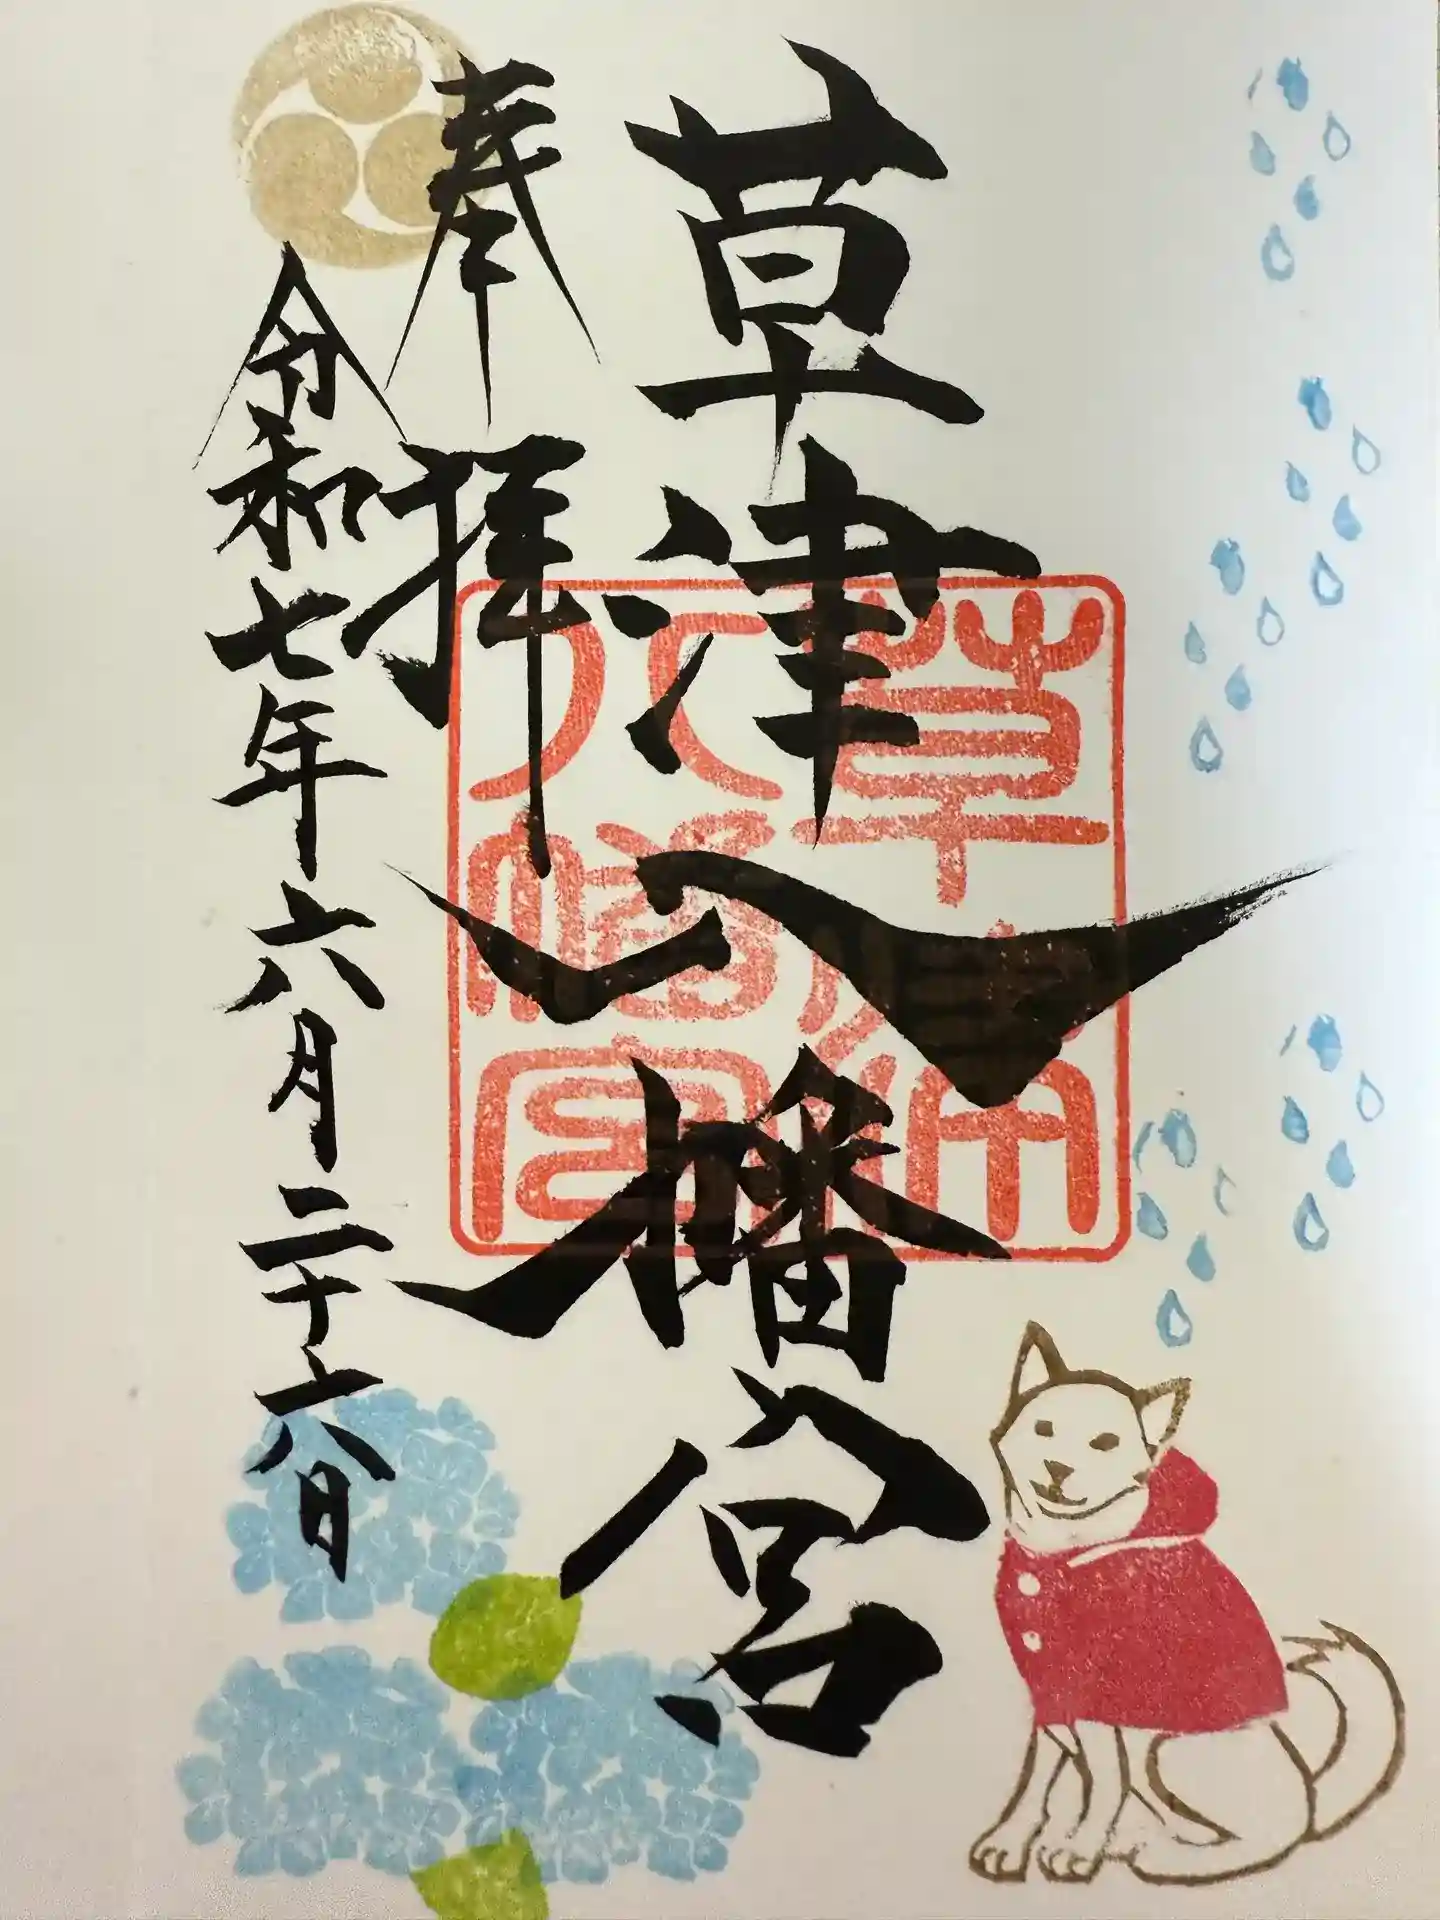 草津八幡宮
奉拝
令和七年六月二十六日
草津
八幡宮